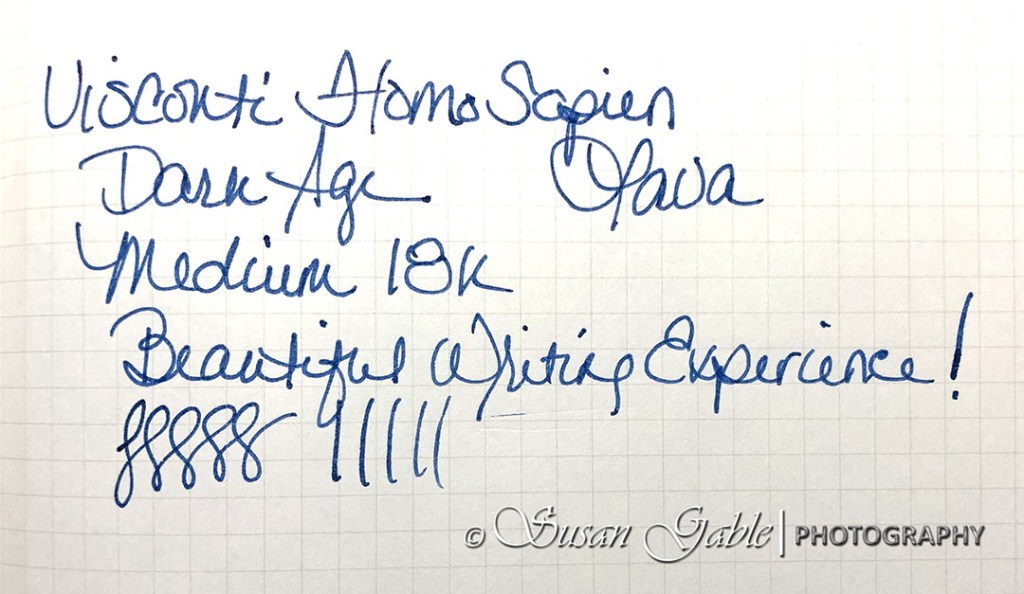 Visconti Homo Sapien
Dark Age Lava
Medium 18K
Beautiful Writing Experience!
© Susan Gable | PHOTOGRAPHY